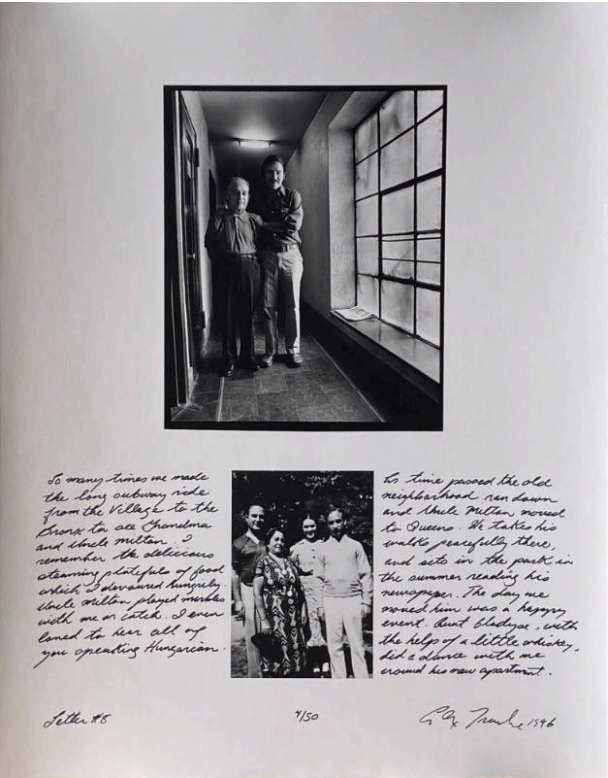 So many times we made
the long subway ride
from the Village to the
Bronx to see Grandma
and Uncle Milton. I
remember the delicious
steaming platefuls of food
which I devoured hungrily
Uncle Milton played marbles
with me or catch. I even
loved to hear all of
you speaking Hungarian.
As time passed the old
neighborhood ran down
and Uncle Milton moved
to Queens. He takes his
walks peacefully there,
and sits in the park in
the summer reading his
newspaper. The day we
moved him was a happy
event. Aunt Gladyse, with
the help of a little whiskey,
did a dance with me
around his new apartment.
Letter #8
/50
1996